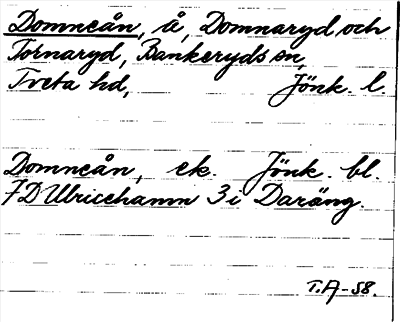 Domneån, å, Domnaryd och
Tornaryd, Bankeryds sn,
Tveta hd, Jönk. l.
Domneån, ek. Jönk. bl.
7D Ulricehamn 3i Daräng.
T.A-58.